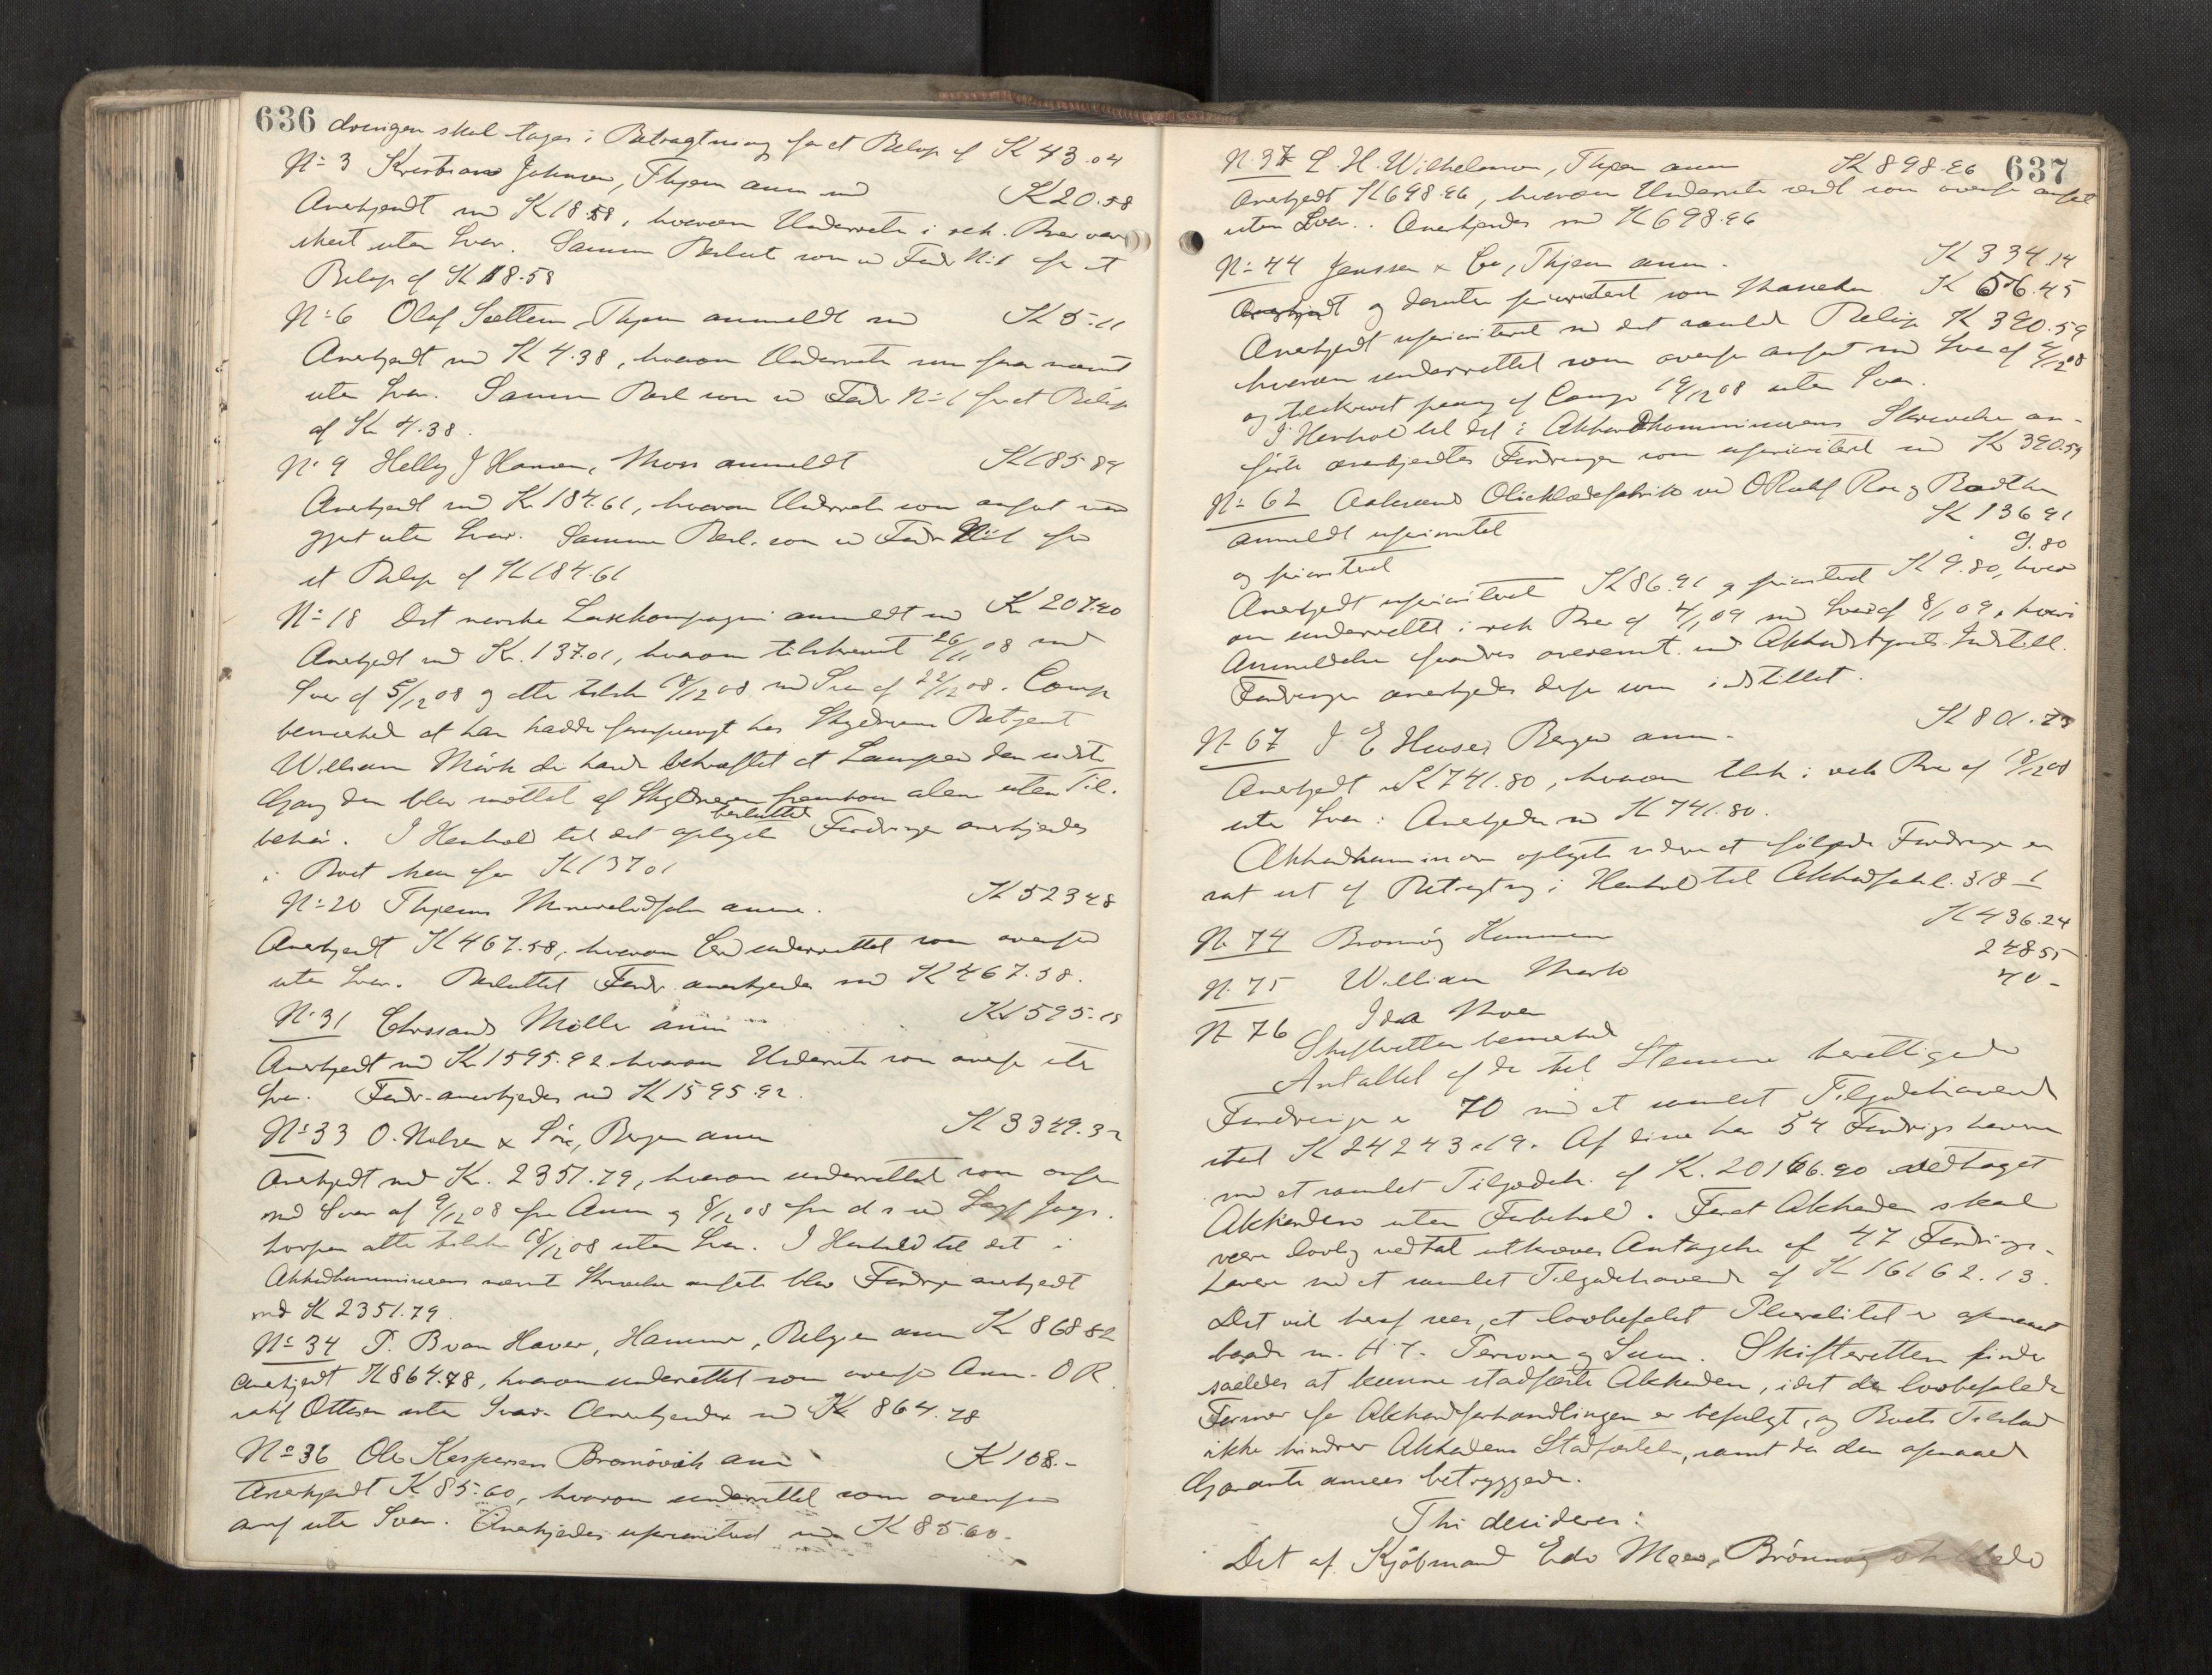 636
dringen skal tages i Betragtning for et Beløp af K 43.04
No 3 Kristian Johnsen, Thjem anm md K 20.58
Anerkjendt md K 18.58, hvorom Underretn i rek. Brev
skeet uten Svar. Samme Beslut som v Fordr No 1 for et
Beløp af K 18.58
No 6 Olaf Sættem, Thjem anmeldt md K 5.11
Anerkjendt md K 4.38, hvorom Underretn
uten Svar. Samme Besl som v Fordr No 1 for et Beløp
af K 4.38.
No 9 Helly J Hansen, Moss anmeldt K 185.89
Anerkjendt md K 184.61, hvorom Underretn som anført
gjort uten Svar. Samme Besl. som v Fordr No 1 for
et Beløp af K 184.61
No 18 Det norske Luxkompagni anmeldt md K 207.40
Anerkjendt md K. 137.01, hvorom tilskrevet 26/11 08 md
Svar af 5/12 08 og atter tilskr 18/12 08 md Svar af 22/12 08. Comp
bemærket at han hadde forespurgt hos Skyldneren Betjent
William Mörk der havde bekræftet at Lampen den sidste
Gang den blev mottat af Skyldneren fremkom alene uten Til-
behör. I Henhold til det oplyste besluttet Fordringen anerkjendes
i Boet kun for K 137.01
No 20 Thjems Mineralvandfabr anm. K 523.48
Anerkjendt K 467.58, hvorom Cred underrettet som ovenfor
uten Svar. Besluttet Fordr. anerkjendes md K 467.58.
No 31 Chrssands Mölle anm K 1595.18
Anerkjendt md K 1595.92 hvorom Underretn som ovenf uten
Svar. Fordr. anerkjendes md K 1595.92.
No 33 O. Nilsen & Sön, Bergen anm K 3349.32
Anerkjendt md K. 2351.79, hvorom underrettet som ovenfor
md Svar af 9/12 08 fra Anm og 8/12 08 fra d s v Sagf Jørg.
atter tilskr 18/12 08 uten Svar. I Henhold til det i
Akkordkommissionens nævnte Skrivelse anførte blev Fordringen anerkjendt
md K 2351.79.
No 34 P. B van Haver, Hamme, Belgien anm K 868.82
Anerkjendt K 864.78, hvorom underrettet som ovenfor Anm. O R
sakf Ottesen uten Svar. Anerkjendes md K 864.78
No 36 Ole Kaspersen Brönövik anm K 108.-
Anerkjendt K 85.60, hvorom underrettet som ovenfor
anf uten Svar. Anerkjendes uprioritert md K 85.60.
637
No 37 L. H. Wilhelmsen, Thjem anm K 898.96
Anerkjendt K 698.96, hvorom Underretn sendt som ovenfor anført
uten Svar. Anerkjendes md K 698.96
No 44 Jenssen & Co, Thjem anm. K 334.14
Anerkjendt og desuten prioritert som K 56.45
Anerkjendt uprioritert md det samlede Beløp K 390.59
hvorom underrettet som ovenfor anført md Svar af 4/12 08
og tilskrevet paany af Comp 19/12 08 uten Svar.
I Henhold til det i Akkordkommissionens Skrivelse an-
førte anerkjendtes Fordringen som uprioritert md K 390.59
No 62 Aalesunds Oliekledefabrik ved O R sakf Roe og Roedtker
anmeldt uprioritert K 136.91
og prioritert 9.80
Anerkjendt uprioritert K 86.91 og prioritert K 9.80, hvor
om underrettet i rek Brev af 4/1 09 md Svar af 8/1 09, hvori
Anmeldelsen frafaldes overensst. md Akkordstyrets Indstill.
Fordringen anerkjendes derfor som indstillet.
No 67 J E Huser Bergen anm. K 801.73
Anerkjendt md K 741.80, hvorom tilsk i rek Brev af 18/12 08
uten Svar: Anerkjendes md K 741.80.
Akkordkommissionen oplyste videre at følgende Fordringer er
sat ut af Betragtning i Henhold til Akkordslovens § 18-1
No 74 Brönnöy Kommune K 436.24
No 75 William Mörk 248.55
No 76 Ida Moen 40-
Skifteretten bemærket
Antallet af de til Stemme berettigede
Fordringer er 70 md et samlet Tilgodehavende
stort K 24243.19. Af disse har 54 Fordringshavere
md et samlet Tilgodeh. af K. 20166.90 vedtaget
Akkorden uten Forbehold. Foret Akkorden skal
være lovlig vedtat utkræves Antagelse af 47 Fordrings-
havere md et samlet Tilgodehavende af K 16162.13.
Det vil heraf sees, at lovbefalet Pluralitet er opnaaet
baade m. H. t. Personer og Sum. Skifteretten finder
saaledes at kunne stadfæste Akkorden, idet de lovbefalede
Former for Akkordforhandlingen er befulgt, og Boets Tilstand
ikke hindrer Akkordens Stadfæstelse, samt da den opnaaede
Garanti ansees betryggende.
Thi decideres:
Det af Kjöbmand Edv Moen, Brönnöy